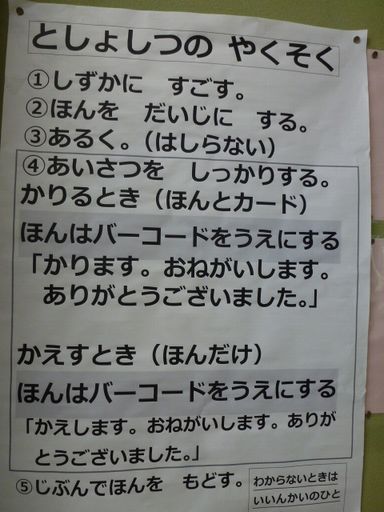 としょしつの やくそく
①しずかに すごす。
②ほんを だいじに する。
③あるく。(はしらない)
④あいさつを しっかりする。
かりるとき(ほんとカード)
ほんはバーコードをうえにする
「かります。おねがいします。
ありがとうございました。」
かえすとき(ほんだけ)
ほんはバーコードをうえにする
「かえします。おねがいします。ありが
とうございました。」
⑤じぶんでほんを もどす。
わからないときは
いいんかいのひと